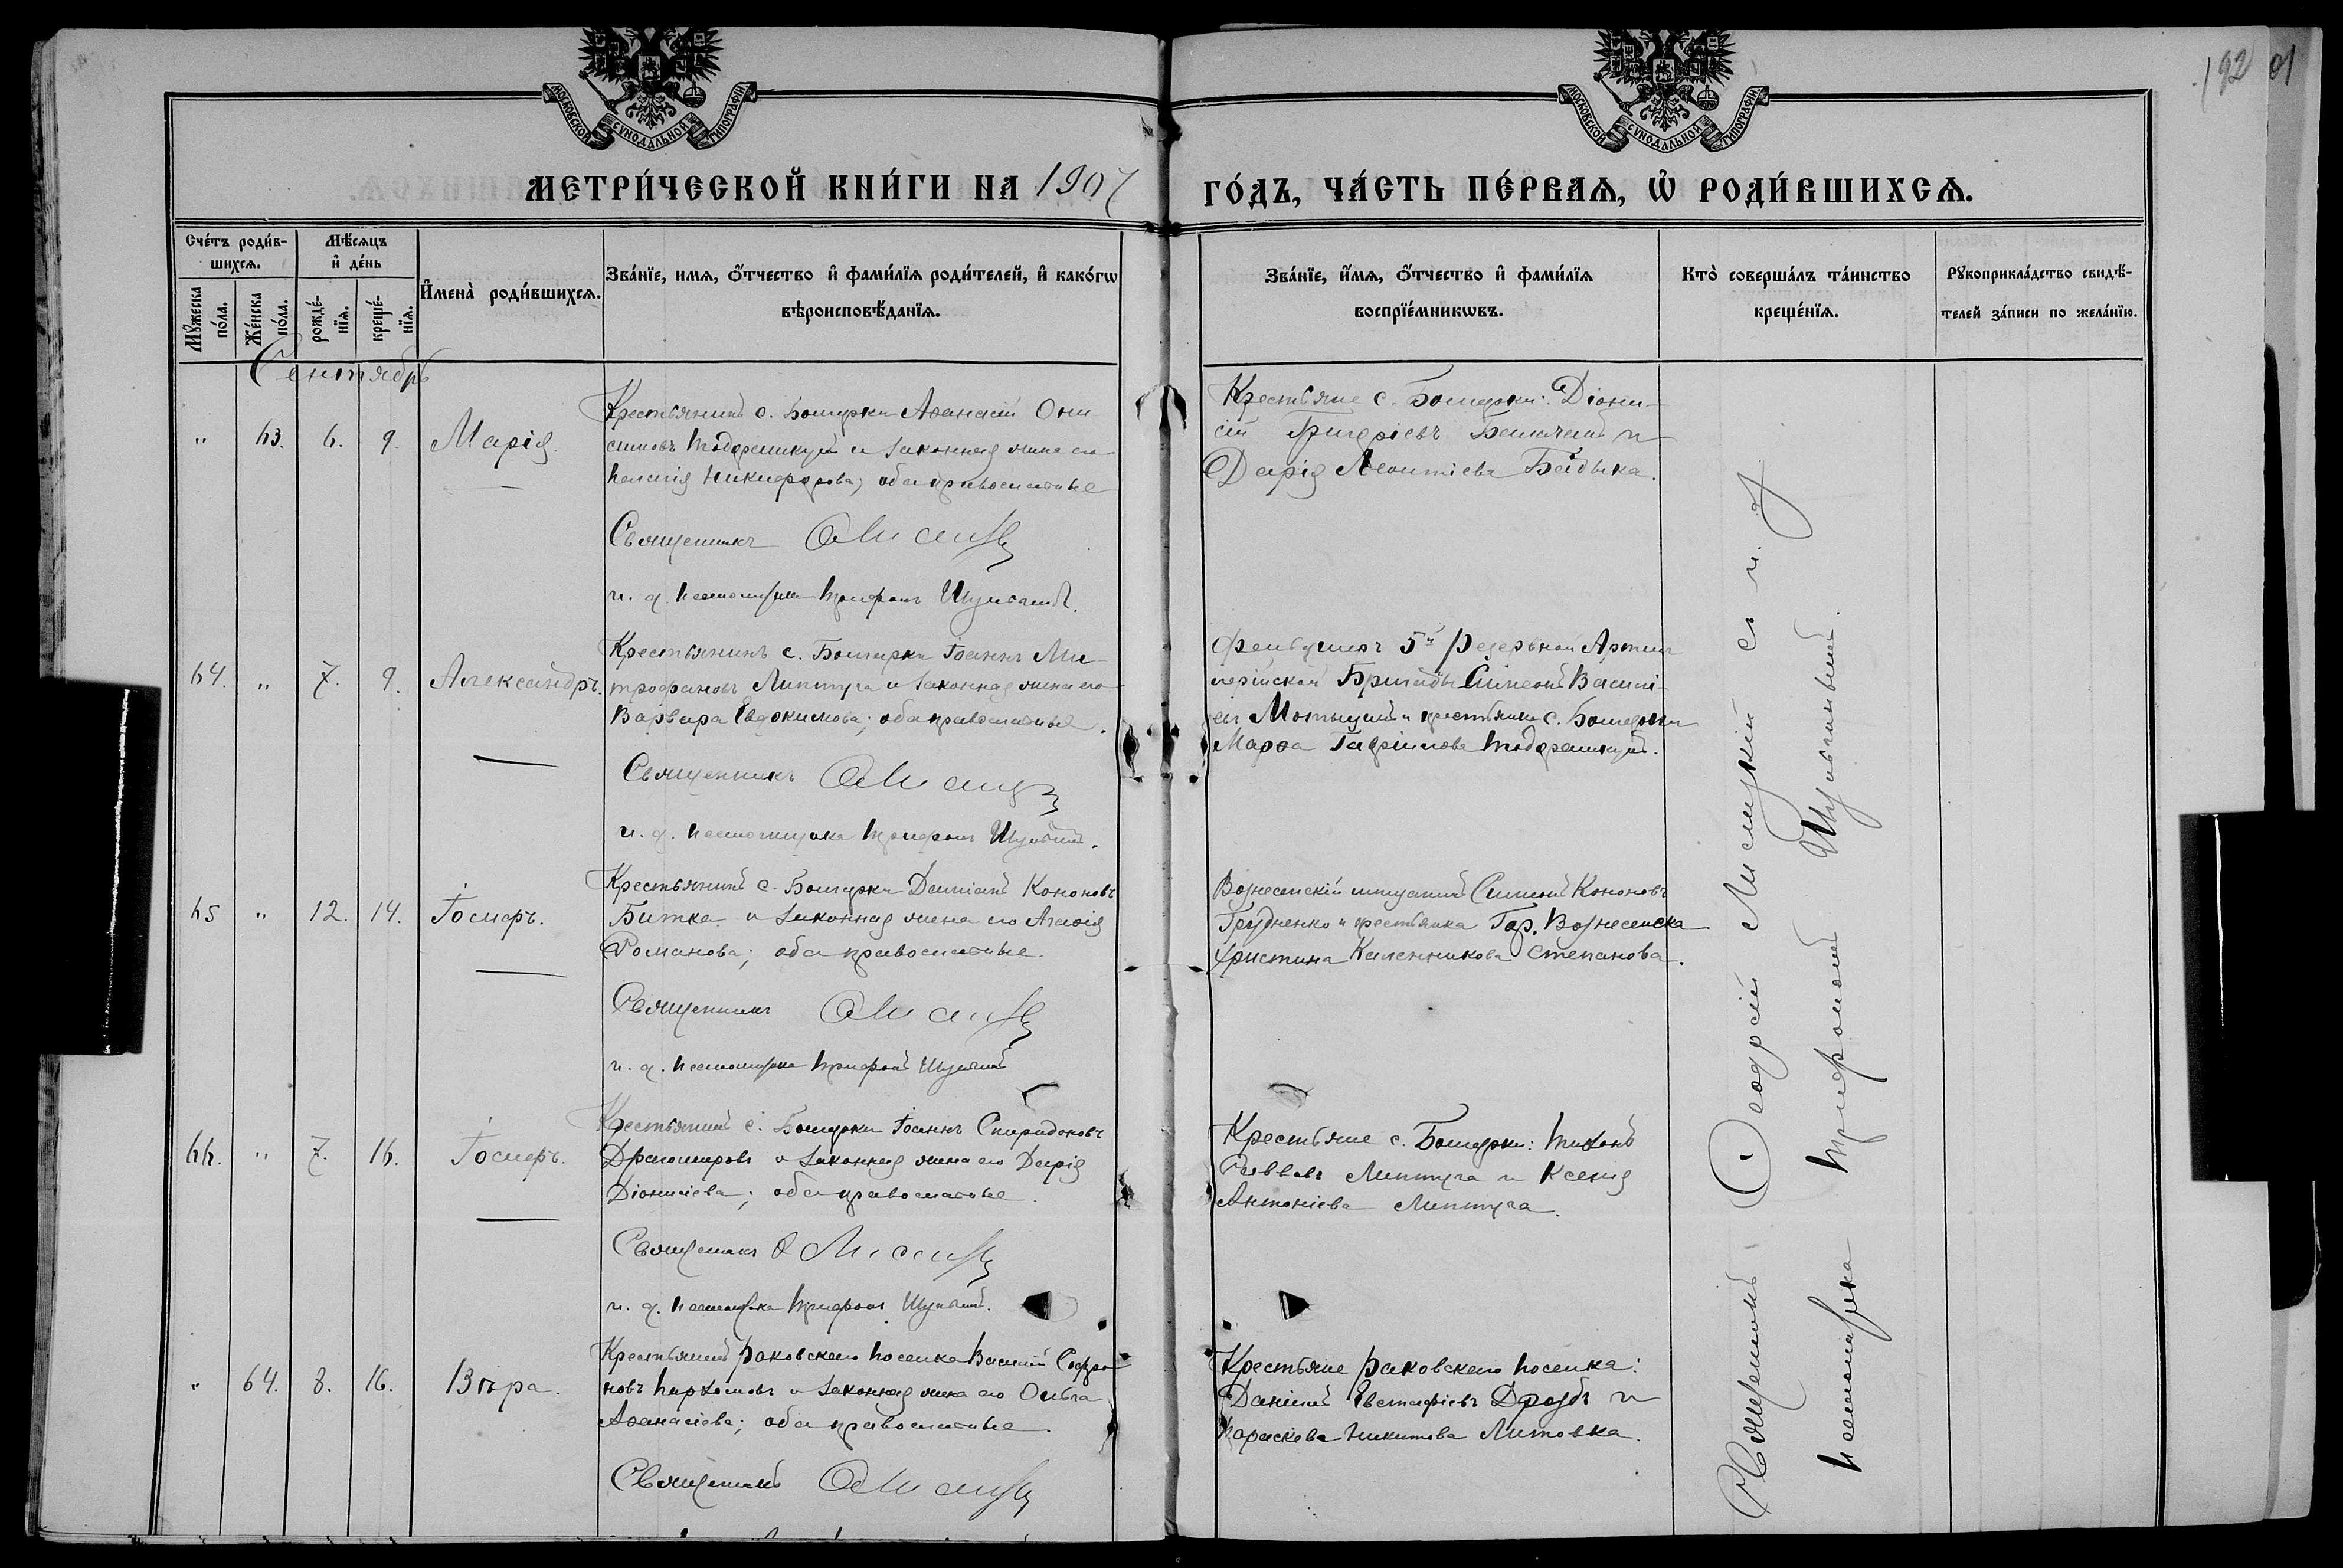 192
МОСКОВСКОЙ СУНОДАЛЬНОЙ ТИПОГРАФІИ
МОСКОВСКОЙ СУНОДАЛЬНОЙ ТИПОГРАФІИ
МЕТРИ́ЧЕСКОЙ КНИ́ГИ НА 1907 ГО́ДЪ, ЧА́СТЬ ПЕ́РВАѦ, Ѡ҆ РОДИ́ВШИХСѦ.
Сче́тъ роди́в-
шихсѧ.
Мꙋ́жеска по́ла.
Же́нска по́ла.
Мѣ́сѧцъ
и҆ де́нь
рожде́-
нїѧ.
креще́-
нїѧ.
И҆мена̀ роди́вшихсѧ.
Зва́нїе, имѧ, ѻ҆́тчество и҆ фами́лїѧ роди́телей, и҆ како́гѡ
вѣроисповѣ́данїѧ.
Зва́нїе, и҆́мѧ, ѻ҆́тчество и҆ фами́лїѧ
воспрїе́мникѡвъ.
Кто̀ соверша́лъ та́инство
креще́нїѧ.
Рꙋкоприкла́дство свидѣ́-
телей за́писи по жела́нїю.
Сентябрь
" 63. 6. 9. Марія.
Крестьянинъ с. Бошерки Аѳанасій Они-
симовъ Тодорашкуй и законная жена его
Никифорова; оба православные
Священникъ
и. д. псаломщика Трифонъ
Крестьяне с. Бошерки: Діони-
сій Григоріевъ и
Дарія Леонтіева Бадыка.
64. " 7. 9. Александръ.
Крестьянинъ с. Бошерки Іоаннъ Ми-
трофановъ Липтуга и законная жена его
Варвара Евдокимова; оба православные.
Священникъ
и. д. псаломщика Трифонъ
5й резервной Артил-
лерійской Бригады Симеонъ Василі-
евъ и крестьянка с. Бошерки
Марѳа Гавріилова Тодорашкуй.
65 " 12. 14. Іосифъ.
Крестьянинъ с. Бошерки Даміанъ Кононовъ
Битка и законная жена его Агаѳія
Романова; оба православные.
Священникъ
и. д. псаломщика Трифонъ
Вознесенскій мѣщанинъ Симеонъ Кононовъ
Грудненко и крестьянка Гор. Вознесенска
Христина Каленникова Степанова.
66. " 7. 16. Іосифъ.
Крестьянинъ с. Бошерки Іоаннъ Спиридоновъ
Драгомировъ и законная жена его Дарія
Діонисіева; оба православные.
Священникъ
и. д. псаломщика Трифонъ
Крестьяне с. Бошерки: Тихонъ
Саввовъ Липтуга и Ксенія
Антоніева Липтуга.
" 64. 8. 16. Вѣра.
Крестьянинъ Раковскаго поселка Василій Софро-
новъ Пархомовъ и законная жена его Ольга
Аѳанасіева; оба православные.
Священникъ
Крестьяне Раковскаго поселка:
Даніилъ Евстафіевъ Дроздъ и
Параскева Никитова Литовка.
Священникъ Ѳеодосій Лисицкій съ и. д.
псаломщика Трифономъ